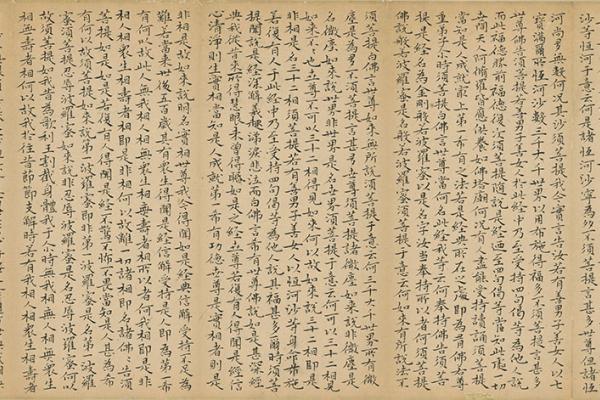 沙等恒河於意云何是諸恒河沙寧為多不須菩提言甚多世尊但諸恒
河尚多無數何況其沙須菩提我今實言告汝若有善男子善女人以七
寶滿爾所恒河沙數三千大千世界以用布施得福多不須菩提言甚多
世尊佛告須菩提若善男子善女人於此經中乃至受持四句偈等為他人說
而此福德勝前福德復次須菩提隨說是經乃至四句偈等當知此處一切
世間天人阿修羅皆應供養如佛塔廟何況有人盡能受持讀誦須菩提
當知是人成就最上第一希有之法若是經典所在之處即為有佛若尊
重弟子爾時須菩提白佛言世尊當何名此經我等云何奉持佛告須菩
提是經名為金剛般若波羅蜜以是名字汝當奉持所以者何須菩提
佛說般若波羅蜜即非般若波羅蜜須菩提於意云何如來有所說法不
須菩提白佛言世尊如來無所說須菩提於意云何三千大千世界所有微
塵是為多不須菩提言甚多世尊須菩提諸微塵如來說非微塵是
名微塵如來說世界非世界是名世界須菩提於意云何可以三十二相見
如來不不也世尊不可以三十二相得見如來何以故如來說三十二相即是
非相是名三十二相須菩提若有善男子善女人以恒河沙等身命布施
若復有人於此經中乃至受持四句偈等為他人說其福甚多爾時須菩
提聞說是經深解義趣涕淚悲泣而白佛言希有世尊佛說如是甚深經
典我從昔來所得慧眼未曾得聞如是之經世尊若復有人得聞是經信
心清淨則生實相當知是人成就第一希有功德世尊是實相者則是
非相是故如來說名實相世尊我今得聞如是經典信解受持不足為
難若當來世後五百歲其有眾生得聞是經信解受持是人即為第一希
有何以故此人無我相人相眾生相無壽者相所以者何我相即是非
相人相眾生相壽者相即是非相何以故離一切諸相即名諸佛佛告須
菩提如是如是若復有人得聞是經不驚不怖不畏當知是人甚為希
有何以故須菩提如來說第一波羅蜜即非第一波羅蜜是名第一波羅
蜜須菩提忍辱波羅蜜如來說非忍辱波羅蜜是名忍辱波羅蜜何以
故須菩提如我昔為歌利王割截身體我於爾時無我相無人相無眾生
相無壽者相何以故我於往昔節節支解時若有我相人相眾生相壽者